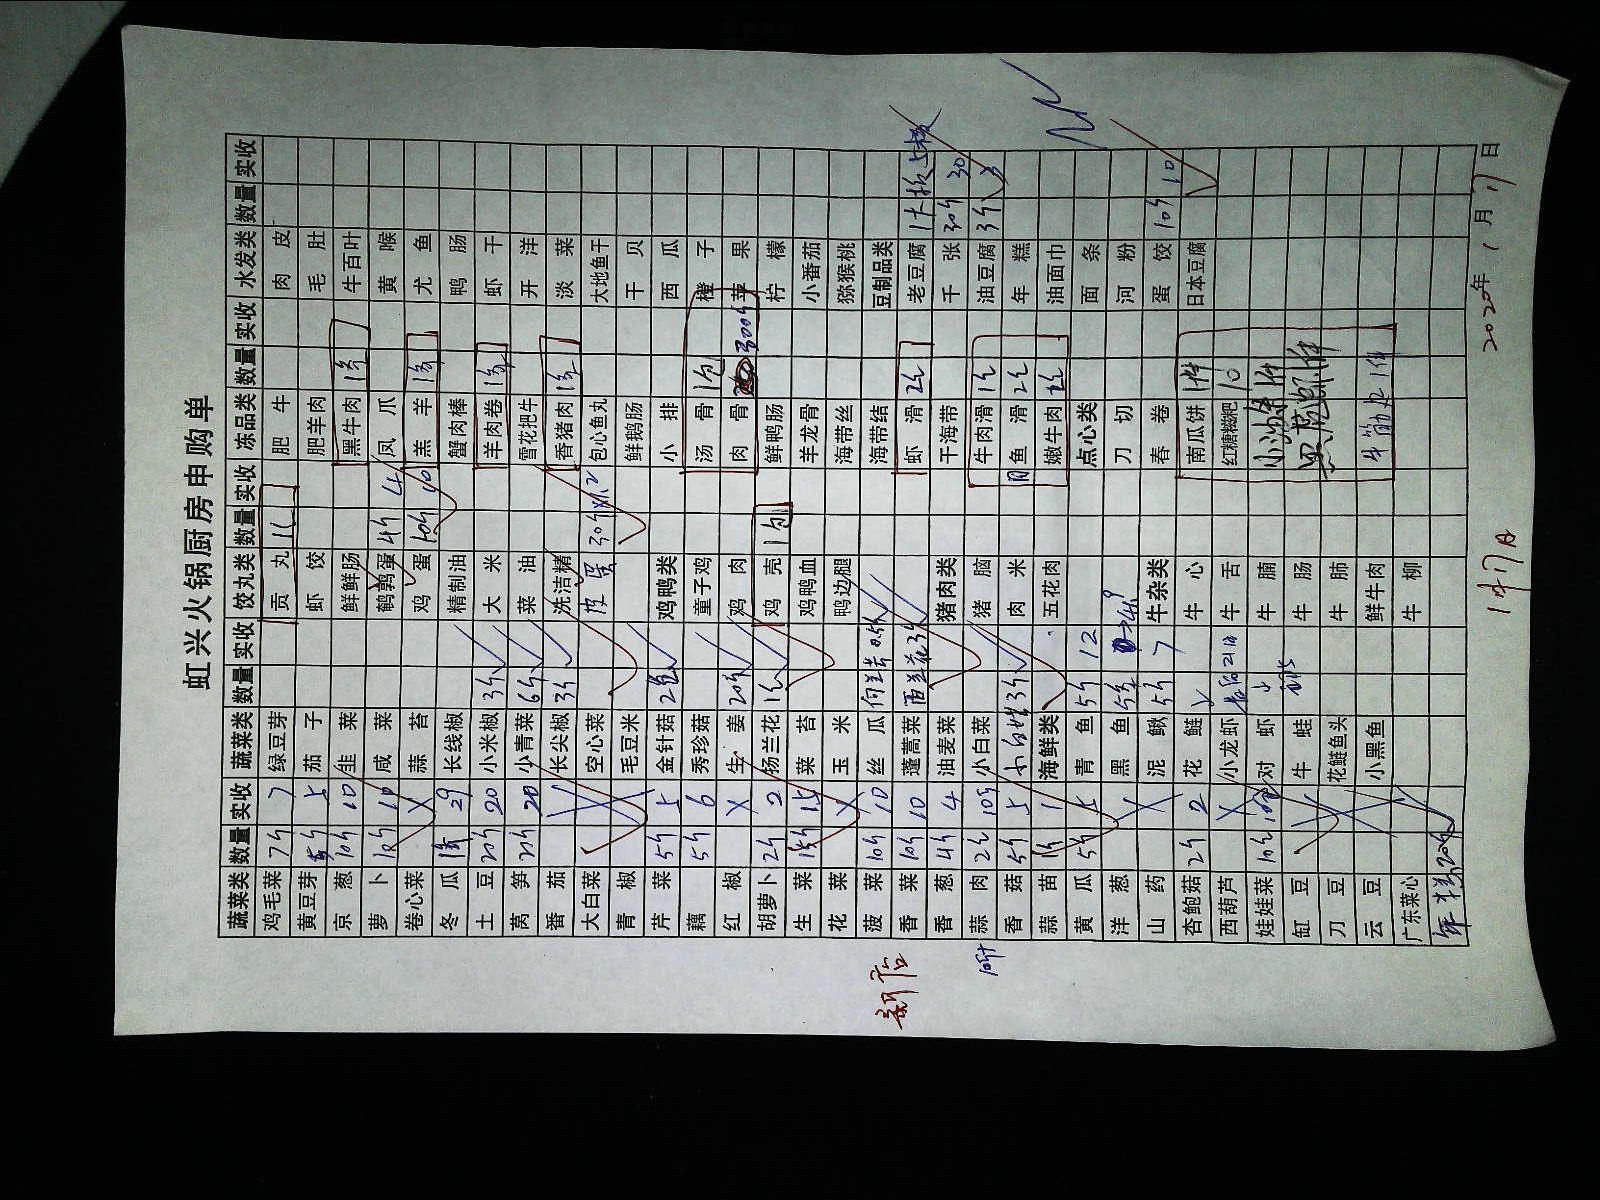 虹兴火锅厨房申购单
蔬菜类 数量 实收 蔬菜类 数量 实收 饺丸类 数量 实收 冻品类 数量 实收 水发类 数量 实收
鸡毛菜 7斤 7 绿豆芽 贡丸 1件 肥牛 肉皮
黄豆芽 5斤 5 茄子 虾饺 肥羊肉 毛肚
京葱 10斤 10 韭菜 鲜鲜肠 黑牛肉 1条 牛百叶
萝卜 10斤 10 咸菜 鹌鹑蛋 4斤 4 凤爪 黄喉
卷心菜 X 蒜苔 鸡蛋 10斤 10 羔羊 1条 尤鱼
冬瓜 1条 29 长线椒 精制油 蟹肉棒 鸭肠
土豆 20斤 20 小米椒 3斤 大米 羊肉卷 1条 虾干
莴笋 20斤 20 小青菜 6斤 菜油 雪花把牛 开洋
番茄 长尖椒 3斤 洗洁精 香猪肉 1条 淡菜
大白菜 空心菜 皮蛋 30个 包心鱼丸 大地鱼干
青椒 毛豆米 鲜鹅肠 干贝
芹菜 5斤 5 金针菇 2包 鸡鸭类 小排 西瓜
藕 5斤 6 秀珍菇 童子鸡 汤骨 1包 橙子
红椒 X 生姜 20斤 鸡肉 肉骨 300斤 苹果
胡萝卜 2斤 2 扬兰花 1斤 鸡壳 1包 鲜鸭肠 柠檬
生菜 15斤 15 菜苔 鸡鸭血 羊龙骨 小番茄
花菜 X 玉米 鸭边腿 海带丝 猕猴桃
菠菜 10斤 10 丝瓜 海带结 豆制品类
香菜 10斤 10 蓬蒿菜 西兰花 3斤 虾滑 2件 老豆腐 1大板
香葱 4斤 4 油麦菜 猪肉类 干海带 千张 30斤 30
蒜肉 2斤 10斤 小白菜 猪脑 牛肉滑 1件 油豆腐 3斤 3
香菇 5斤 5 3斤 肉米 鱼滑 2件 年糕
蒜苗 1斤 1 海鲜类 五花肉 嫩牛肉 油面巾
黄瓜 5斤 5 青鱼 5斤 12 点心类 面条
洋葱 黑鱼 5条 24.9 刀切 河粉
山药 X 泥鳅 5斤 7 牛杂类 春卷 蛋饺 10斤 10
杏鲍菇 2斤 2 花鲢 牛心 南瓜饼 1件 日本豆腐
西葫芦 X 小龙虾 牛舌 红糖糍粑 10
娃娃菜 10斤 对虾 牛腩 小油条 1件
缸豆 牛蛙 牛肠
刀豆 花鲢鱼头 牛肺
云豆 小黑鱼 鲜牛肉 牛筋丸 1件
广东菜心 牛柳
年糕 20斤
新店
10斤
1月17日
2020年 1月 17日